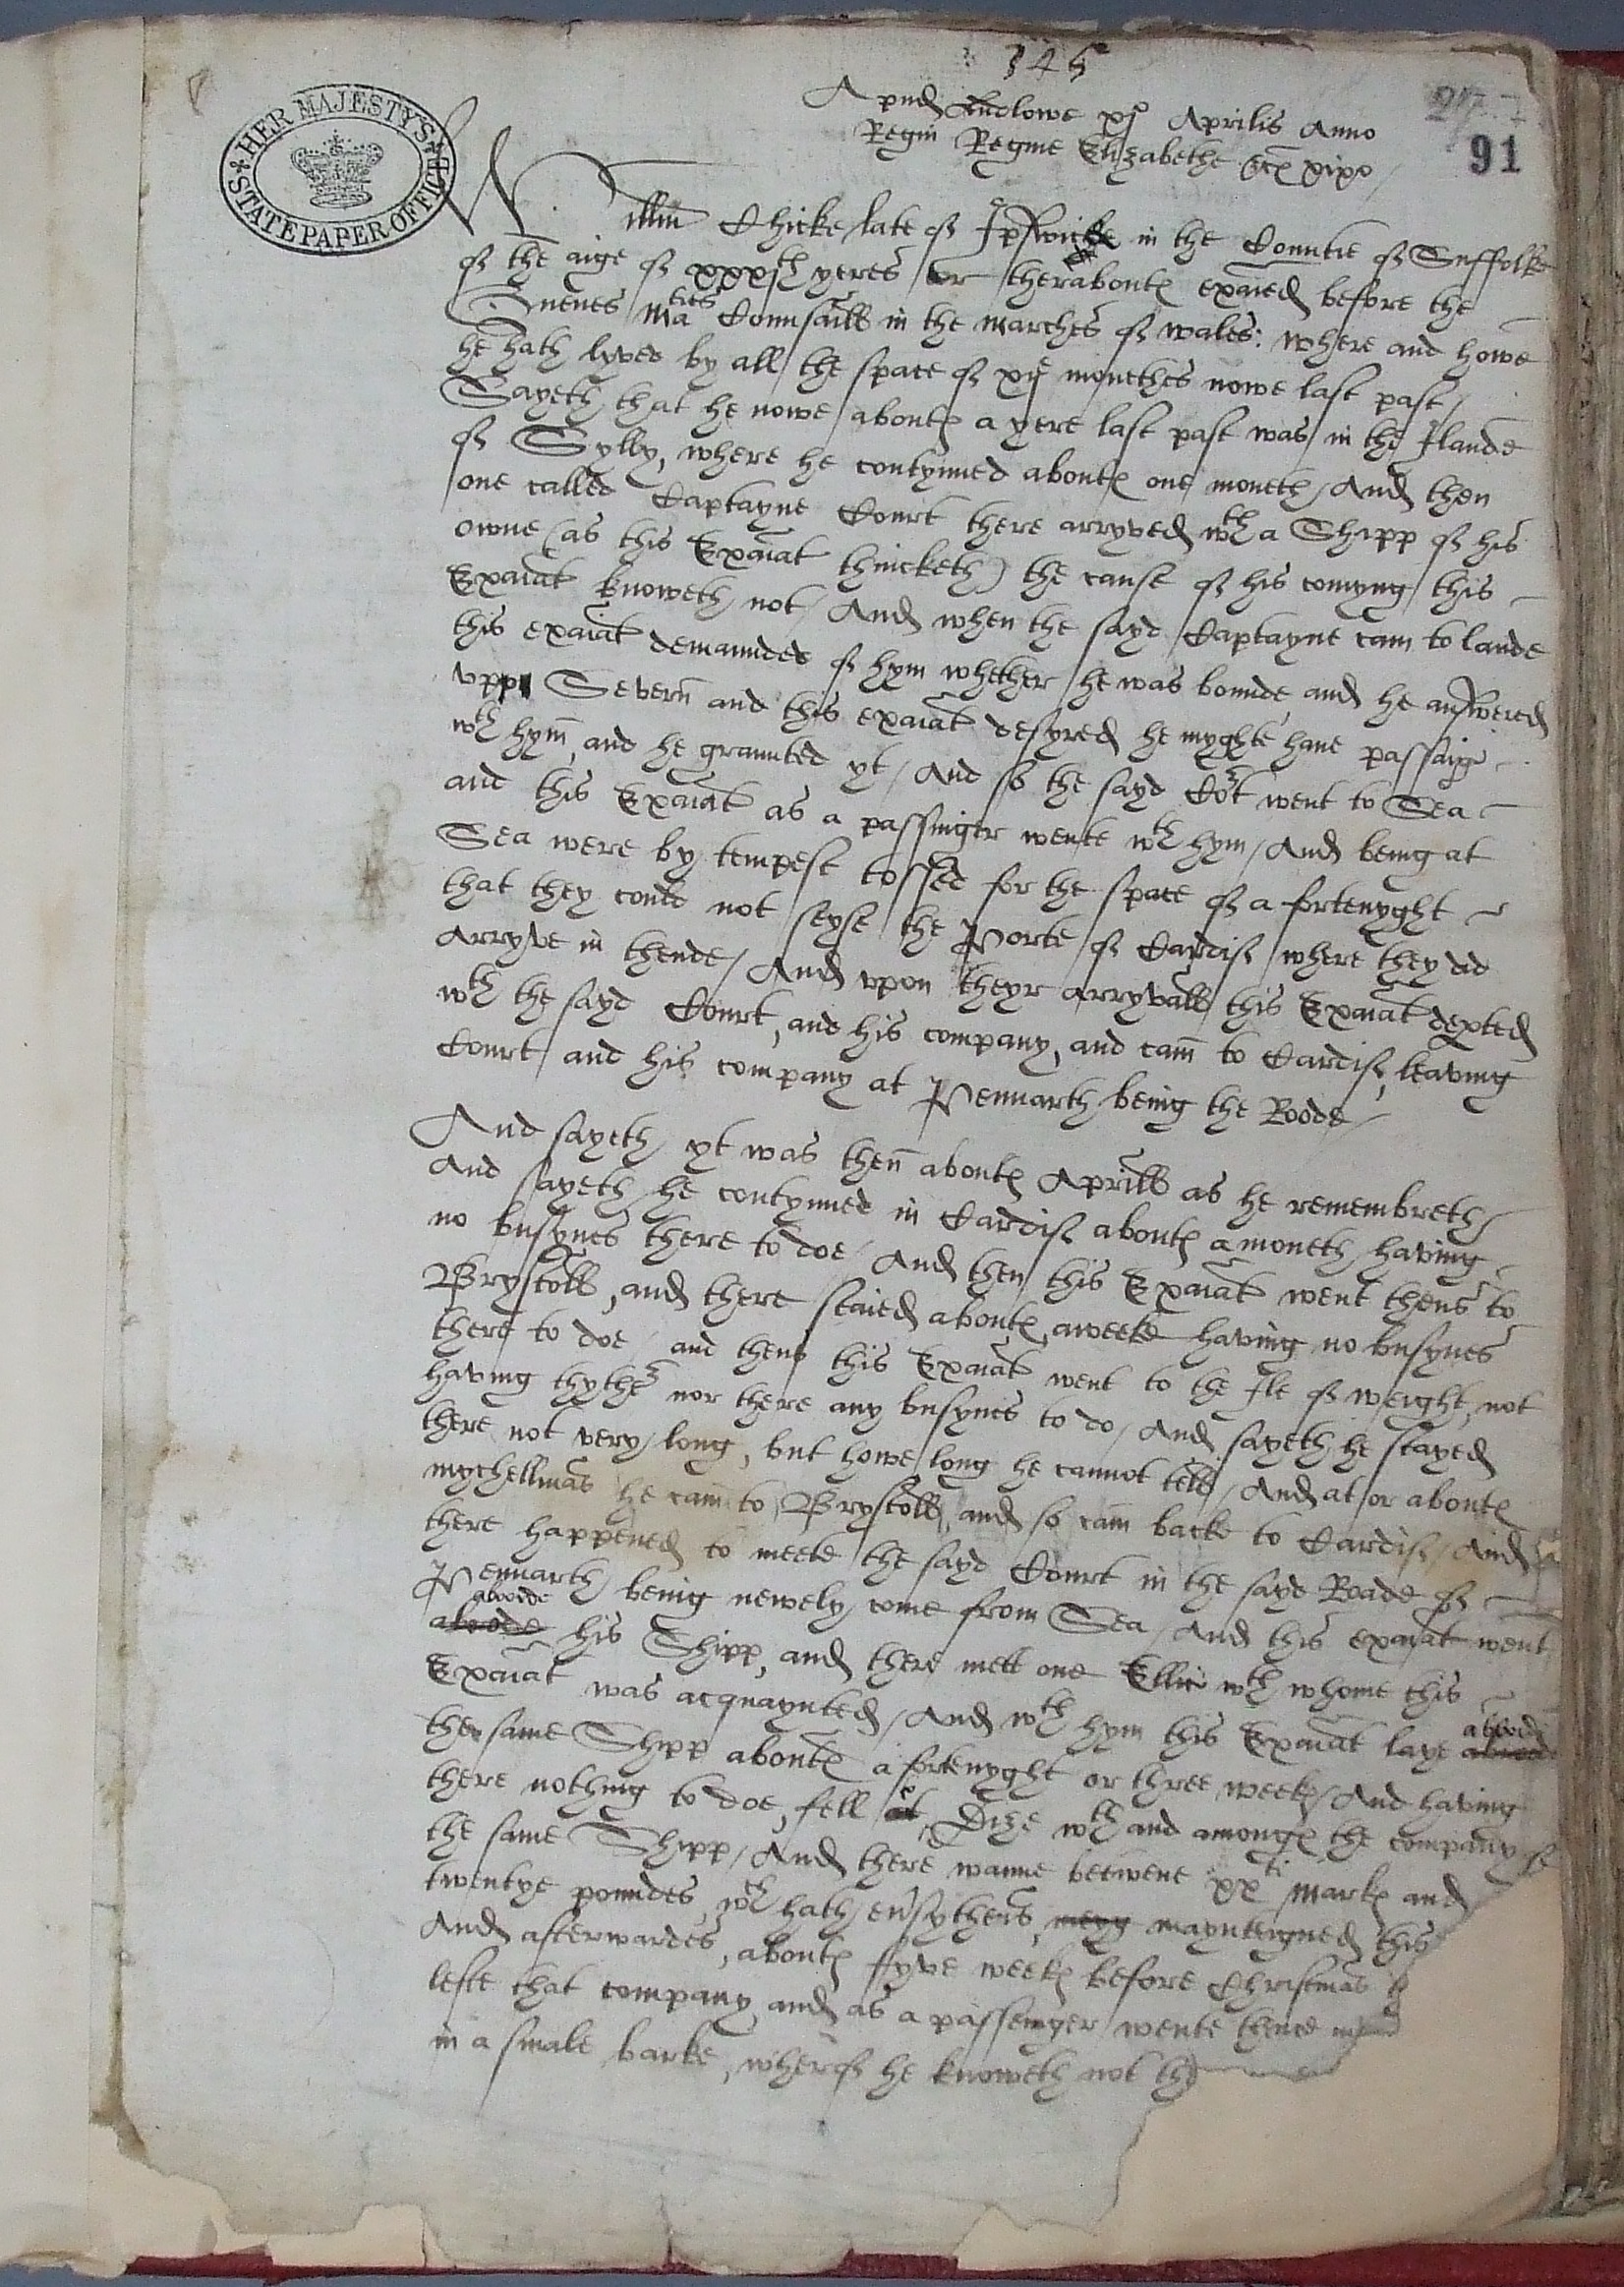 345
Apud Ludlowe xj Aprilis Anno
Regni Regine Elizabethe &c xixo
91
HER MAJESTY'S STATE PAPER OFFICE
Willm Chicke late of Ipswiche in the Countie of Suffolke
of the aige of xxxth yeres or theraboute exaied before the
Quenes Maties Counsaill in the marches of wales: where and howe
he hath lyved by all the space of xij monethes nowe last past /
Sayeth that he nowe aboute a yere last past was in the Ilande
of Sylly, where he contynued aboute one moneth / And then
one called Captayne Court there arryved wth a Shipp of his
owne (as this Exaiat thincketh) the cause of his comyng this
Exaiat knoweth not / And when the sayd Captayne cam to lande
this exaiat demaunded of hym whether he was bounde and he answered
upp Severn and this exaiat desyred he myghte have passaige
wth hym, and he graunted yt / And so the sayd Cort went to Sea
and this Exaiat as a passinger wente wth hym / And being at
Sea were by tempest tossed for the space of a fortenyght
that they could not seyse the Porte of Cardif where they did
arryve in thende / And upon theyr arryvall this Exaiat depted
wth the sayd Court, and his company, and cam to Cardif, leaving
Court and his company at Pennarth being the Roode /
And sayeth yt was then aboute Aprill as he remembreth /
And sayeth he contynued in Cardif aboute a moneth having
no busynes there to doe / And then this Exaiat went thens to
Brystoll, and there staied aboute aweeke having no busynes
there to doe / and thens this Exaiat went to the Ile of weight, not
having thyther nor there any busynes to do / And sayeth he stayed
there not very long, but howe long he cannot tell / And at or aboute
mychellmas he cam to Brystoll, and so cam backe to Cardif / And
there happened to meete the sayd Court in the sayd Roade of
Pennarth being newely come from Sea / And this exaiat went
aborde
his Shipp, and there mett one Ellis wth whome this
Exaiat was acquaynted / And wth hym this Exaiat laye aborde
the same Shipp aboute a fortenyght or three weeke / And having
there nothing to doe, fell at Dize wth and amonge the company of
the same Shipp / And there wanne betwene xxti marke and
twentye poundes, wch hath ensythens maynteigned this
And afterwardes, aboute fyve weeke before Christmas
lefte that company and as a passenger wente thence
in a smale barke, wherof he knoweth not th